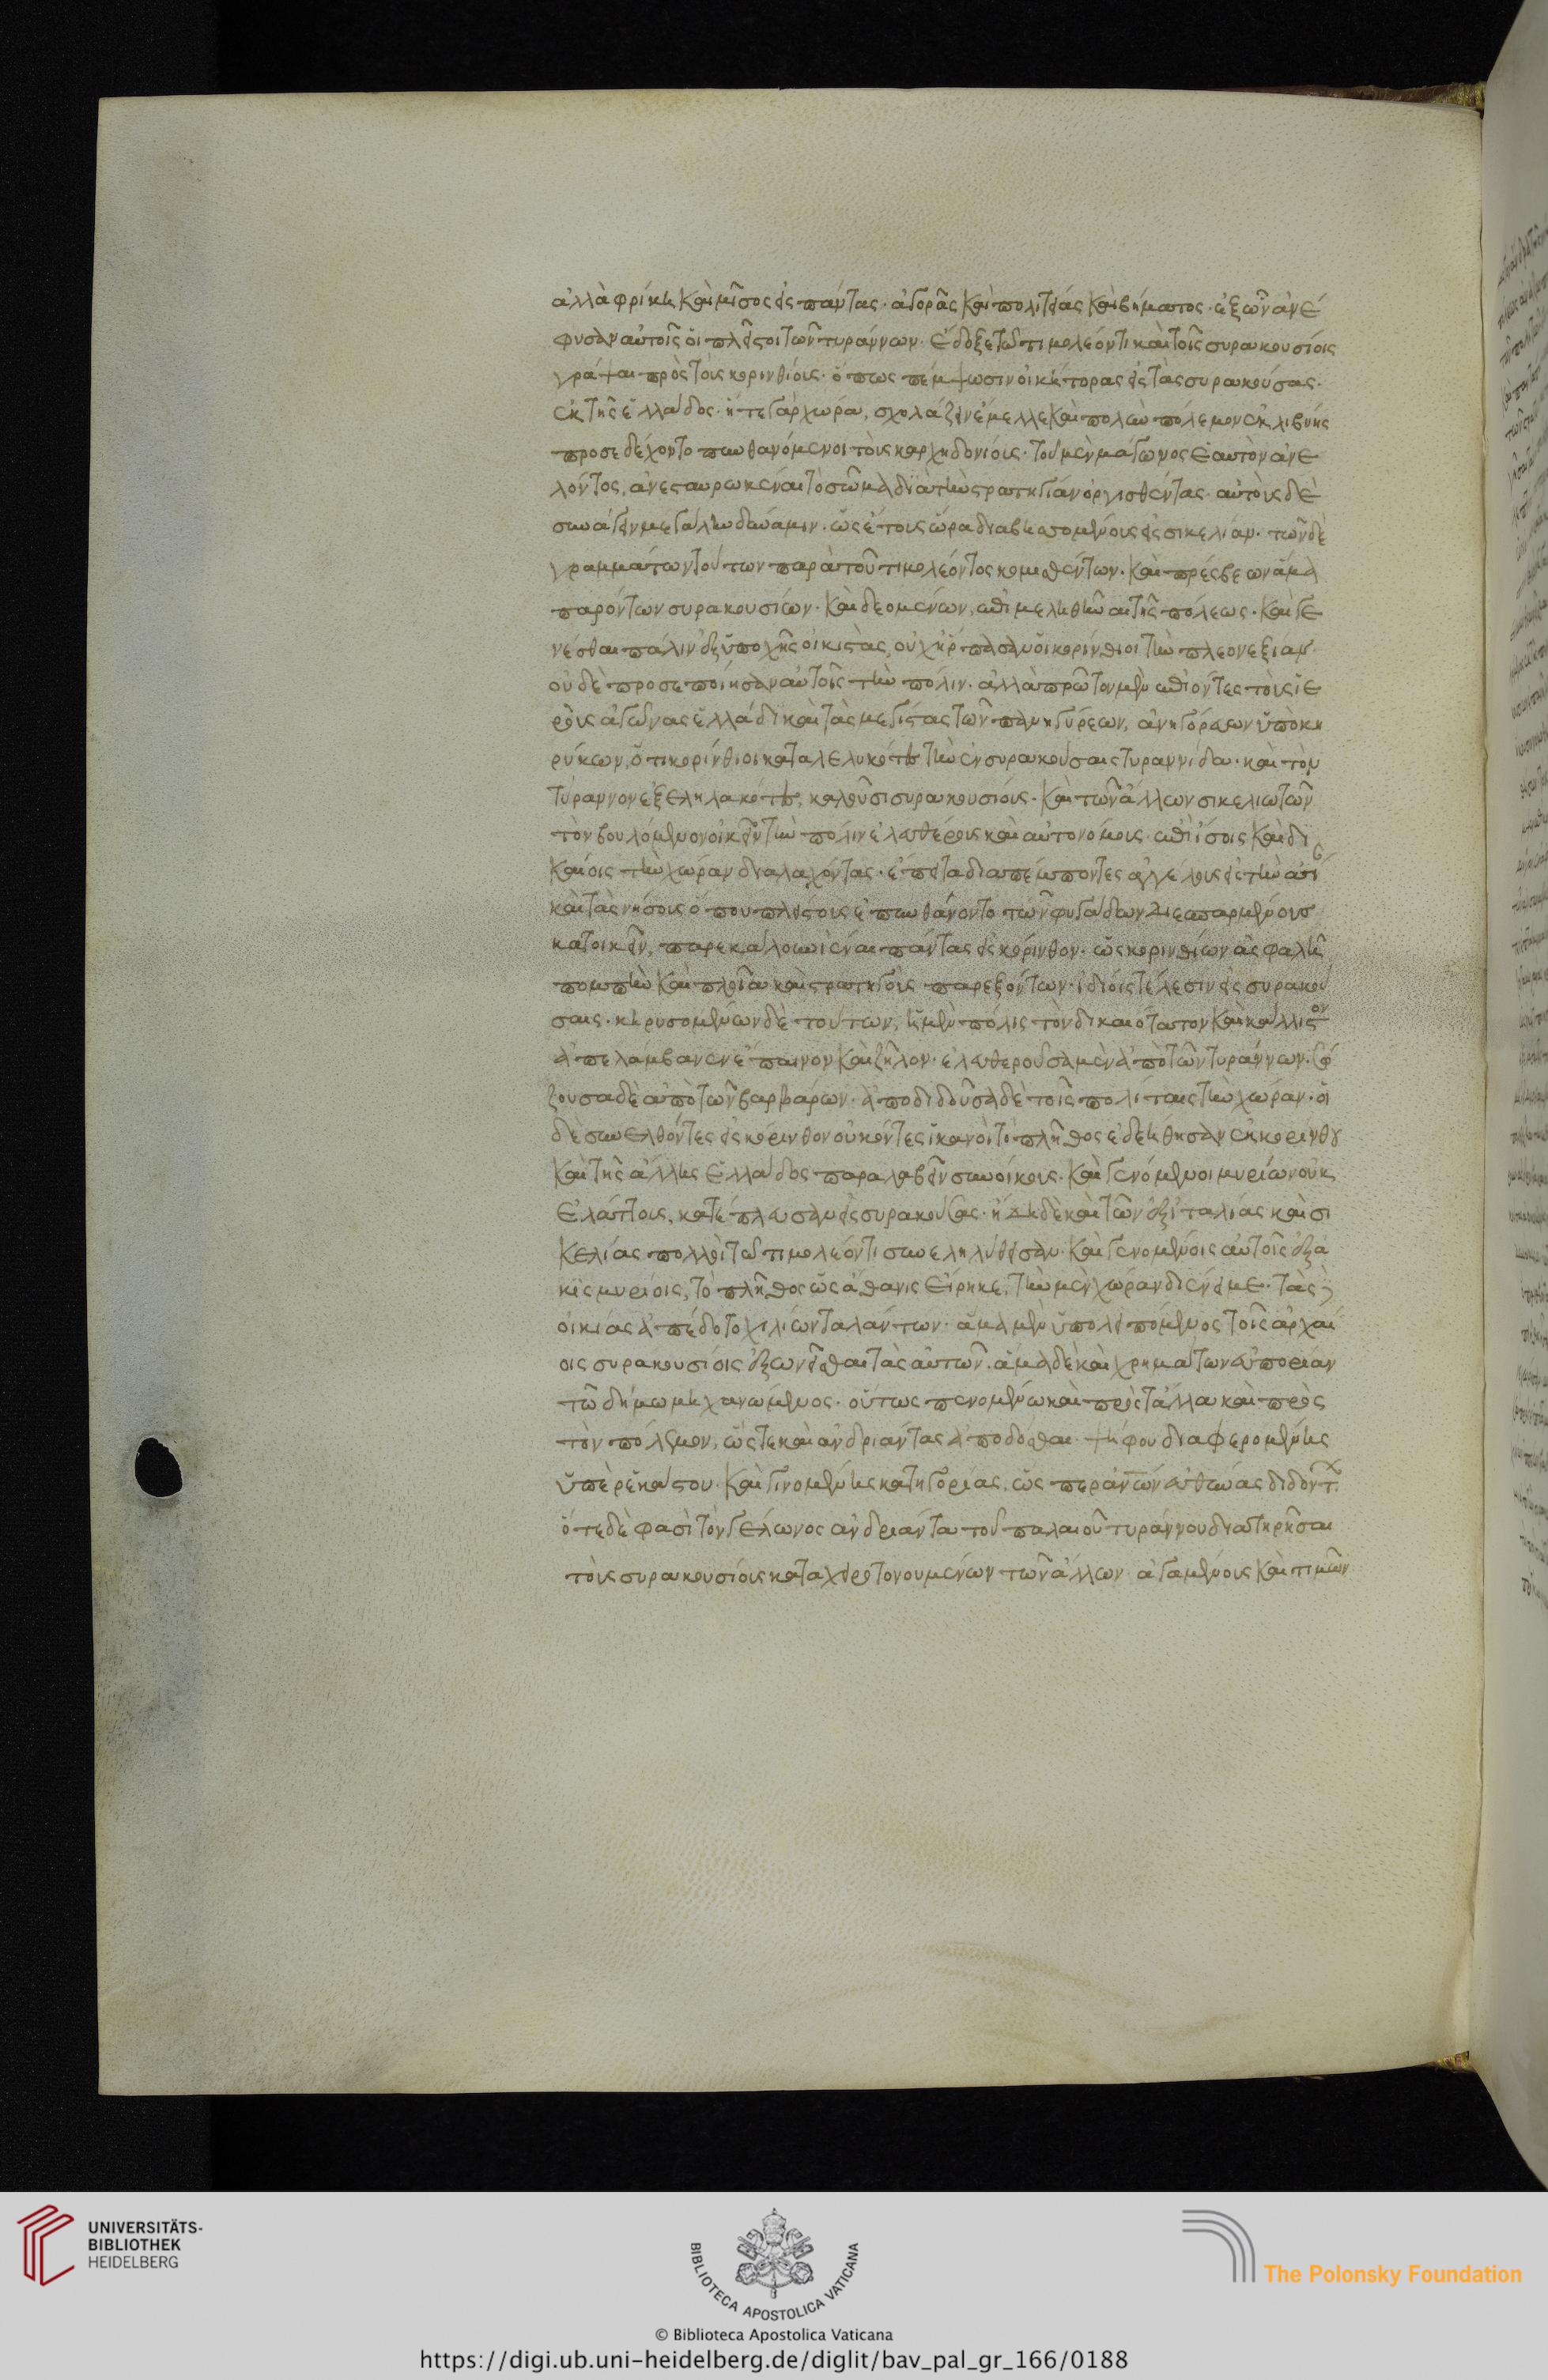 ἀλλὰ φρίκη καὶ μῖσος εἶχε πάντας ἀγορᾶς καὶ πολιτείας καὶ βήματος. ἐξ ὧν ἀνέ
φυσαν αὐτοῖς οἱ πλεῖστοι τῶν τυράννων. ἔδοξε τῶ τιμολέοντι καὶ τοῖς συρακουσίοις
γράψαι πρὸς τοὺς κορινθίους. ὅπως πέμψωσιν οἰκήτορας εἰς τὰς συρακούσας.
ἐκ τῆς ἑλλάδος. ἥ τε γὰρ χώρα, σχολάζειν ἔμελλε καὶ πολὺν πόλεμον ἐκ λιβύης
προσεδέχοντο πυνθανόμενοι τοὺς καρχηδονίους. τοῦ μὲν μάγωνος ἑαυτὸν ἀνε
λόντος, ἀνεσταυρωκέναι τὸ σῶμα διὰ τὴν στρατηγίαν ὀργισθέντας. αὐτοὺς δὲ
συνάγειν μεγάλην δύναμιν. ὡς ἔτους ὥρα διαβησομένους εἰς σικελίαν. τῶν δὲ
γραμμάτων τούτων παρὰ τοῦ τιμολέοντος κομισθέντων. καὶ πρέσβεων ἅμα
παρόντων συρακουσίων. καὶ δεομένων, ἐπιμεληθῆναι τῆς πόλεως. καὶ γε
νέσθαι πάλιν ἐξ ὑποχῆς οἰκιστὰς, οὐχ ἥρπασαν οἱ κορίνθιοι τὴν πλεονεξίαν.
οὐδὲ προσεποίησαν αὐτοῖς τὴν πόλιν. ἀλλὰ πρῶτον μὲν ἐπιόντες τοὺς ἱε
ροὺς ἀγῶνας ἑλλάδι καὶ τὰς μεγίστας τῶν πανηγύρεων, ἀνηγόρευον ὑπὸ κη
ρύκων, ὅτι κορίνθιοι καταλελυκότες τὴν ἐν συρακούσαις τυραννίδα. καὶ τὸν
τύραννον ἐξεληλακότες, καλοῦσι συρακουσίους. καὶ τῶν ἄλλων σικελιωτῶν
τὸν βουλόμενον οἰκεῖν τὴν πόλιν ἐλευθέρους καὶ αὐτονόμους. ἐπ' ἴσοις καὶ δι
καίοις τὴν χώραν διαλαχόντας. ἔπειτα διαπέμποντες ἀγγέλους εἰς τὴν ἀσί
καὶ τὰς νήσους ὅπου πλείστους ἐπυνθάνοντο τῶν φυγάδων διεσπαρμένους
κατοικεῖν, παρεκάλουν ἰέναι πάντας εἰς κόρινθον. ὡς κορινθίων ἀσφαλῆ
πομπὴν καὶ πλοῖα καὶ στρατηγοὺς παρεξόντων. ἰδίοις τέλεσιν εἰς συρακού
σας. κηρυσομένων δὲ τούτων, ἡ μὲν πόλις τὸν δικαιότατον καὶ κάλλιστον
ἀπελάμβανεν ἔπαινον καὶ ζῆλον. ἐλευθεροῦσα μὲν ἀπὸ τῶν τυράννων. σώ
ζουσα δὲ ἀπὸ τῶν βαρβάρων. ἀποδιδοῦσα δὲ τοῖς πολίταις τὴν χώραν. οἱ
δὲ συνελθόντες εἰς κόρινθον οὐκ ὄντες ἱκανοὶ τὸ πλῆθος ἐδεήθησαν ἐκ κορίνθου
καὶ τῆς ἄλλης ἑλλάδος παραλαβεῖν συνοίκους. καὶ γενόμενοι μυρίων οὐκ
ἐλάττους, κατέπλευσαν εἰς συρακούσας. ἤδη δὲ καὶ τῶν ἐξ ἰταλίας καὶ σι
κελίας πολλοὶ τῶ τιμολέοντι συνεληλύθεσαν. καὶ γενομένοις αὐτοῖς ἑξα
κις μυρίοις, τὸ πλῆθος ὡς ἄθανις εἴρηκε, τὴν μὲν χώραν διένειμε. τὰς
οἰκίας ἀπέδοτο χιλίων ταλάντων. ἅμα μὲν ὑπολειπόμενος τοῖς ἀρχαί
οις συρακουσίοις ἐξωνεῖσθαι τὰς αὑτῶν. ἅμα δὲ καὶ χρημάτων εὐπορίαν
τῶ δήμω μηχανώμενος. οὕτως πενομένω καὶ πρὸς τἄλλα καὶ πρὸς
τὸν πόλεμον, ὥστε καὶ ἀνδριάντας ἀποδόσθαι. ψήφου διαφερομένης
ὑπὲρ ἑκάστου. καὶ γινομένης κατηγορίας. ὥσπερ ἀνθρώπων εὐθύνας διδόντ
ὅτε δὲ φασὶ τὸν γέλωνος ἀνδριάντα τοῦ παλαιοῦ τυράννου διατηρῆσαι
τοὺς συρακουσίους καταχειροτονουμένων τῶν ἄλλων ἀγαμένους καὶ τιμῶν
UNIVERSITÄTS-
BIBLIOTHEK
HEIDELBERG
BIBLIOTECA APOSTOLICA VATICANA
© Biblioteca Apostolica Vaticana
The Polonsky Foundation
https://digi.ub.uni-heidelberg.de/diglit/bav_pal_gr_166/0188